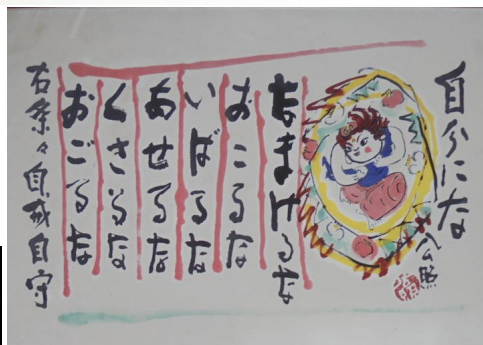 自分にな
公照
なまけるな
おこるな
いばるな
あせるな
くさるな
おごるな
右条々自戒自守